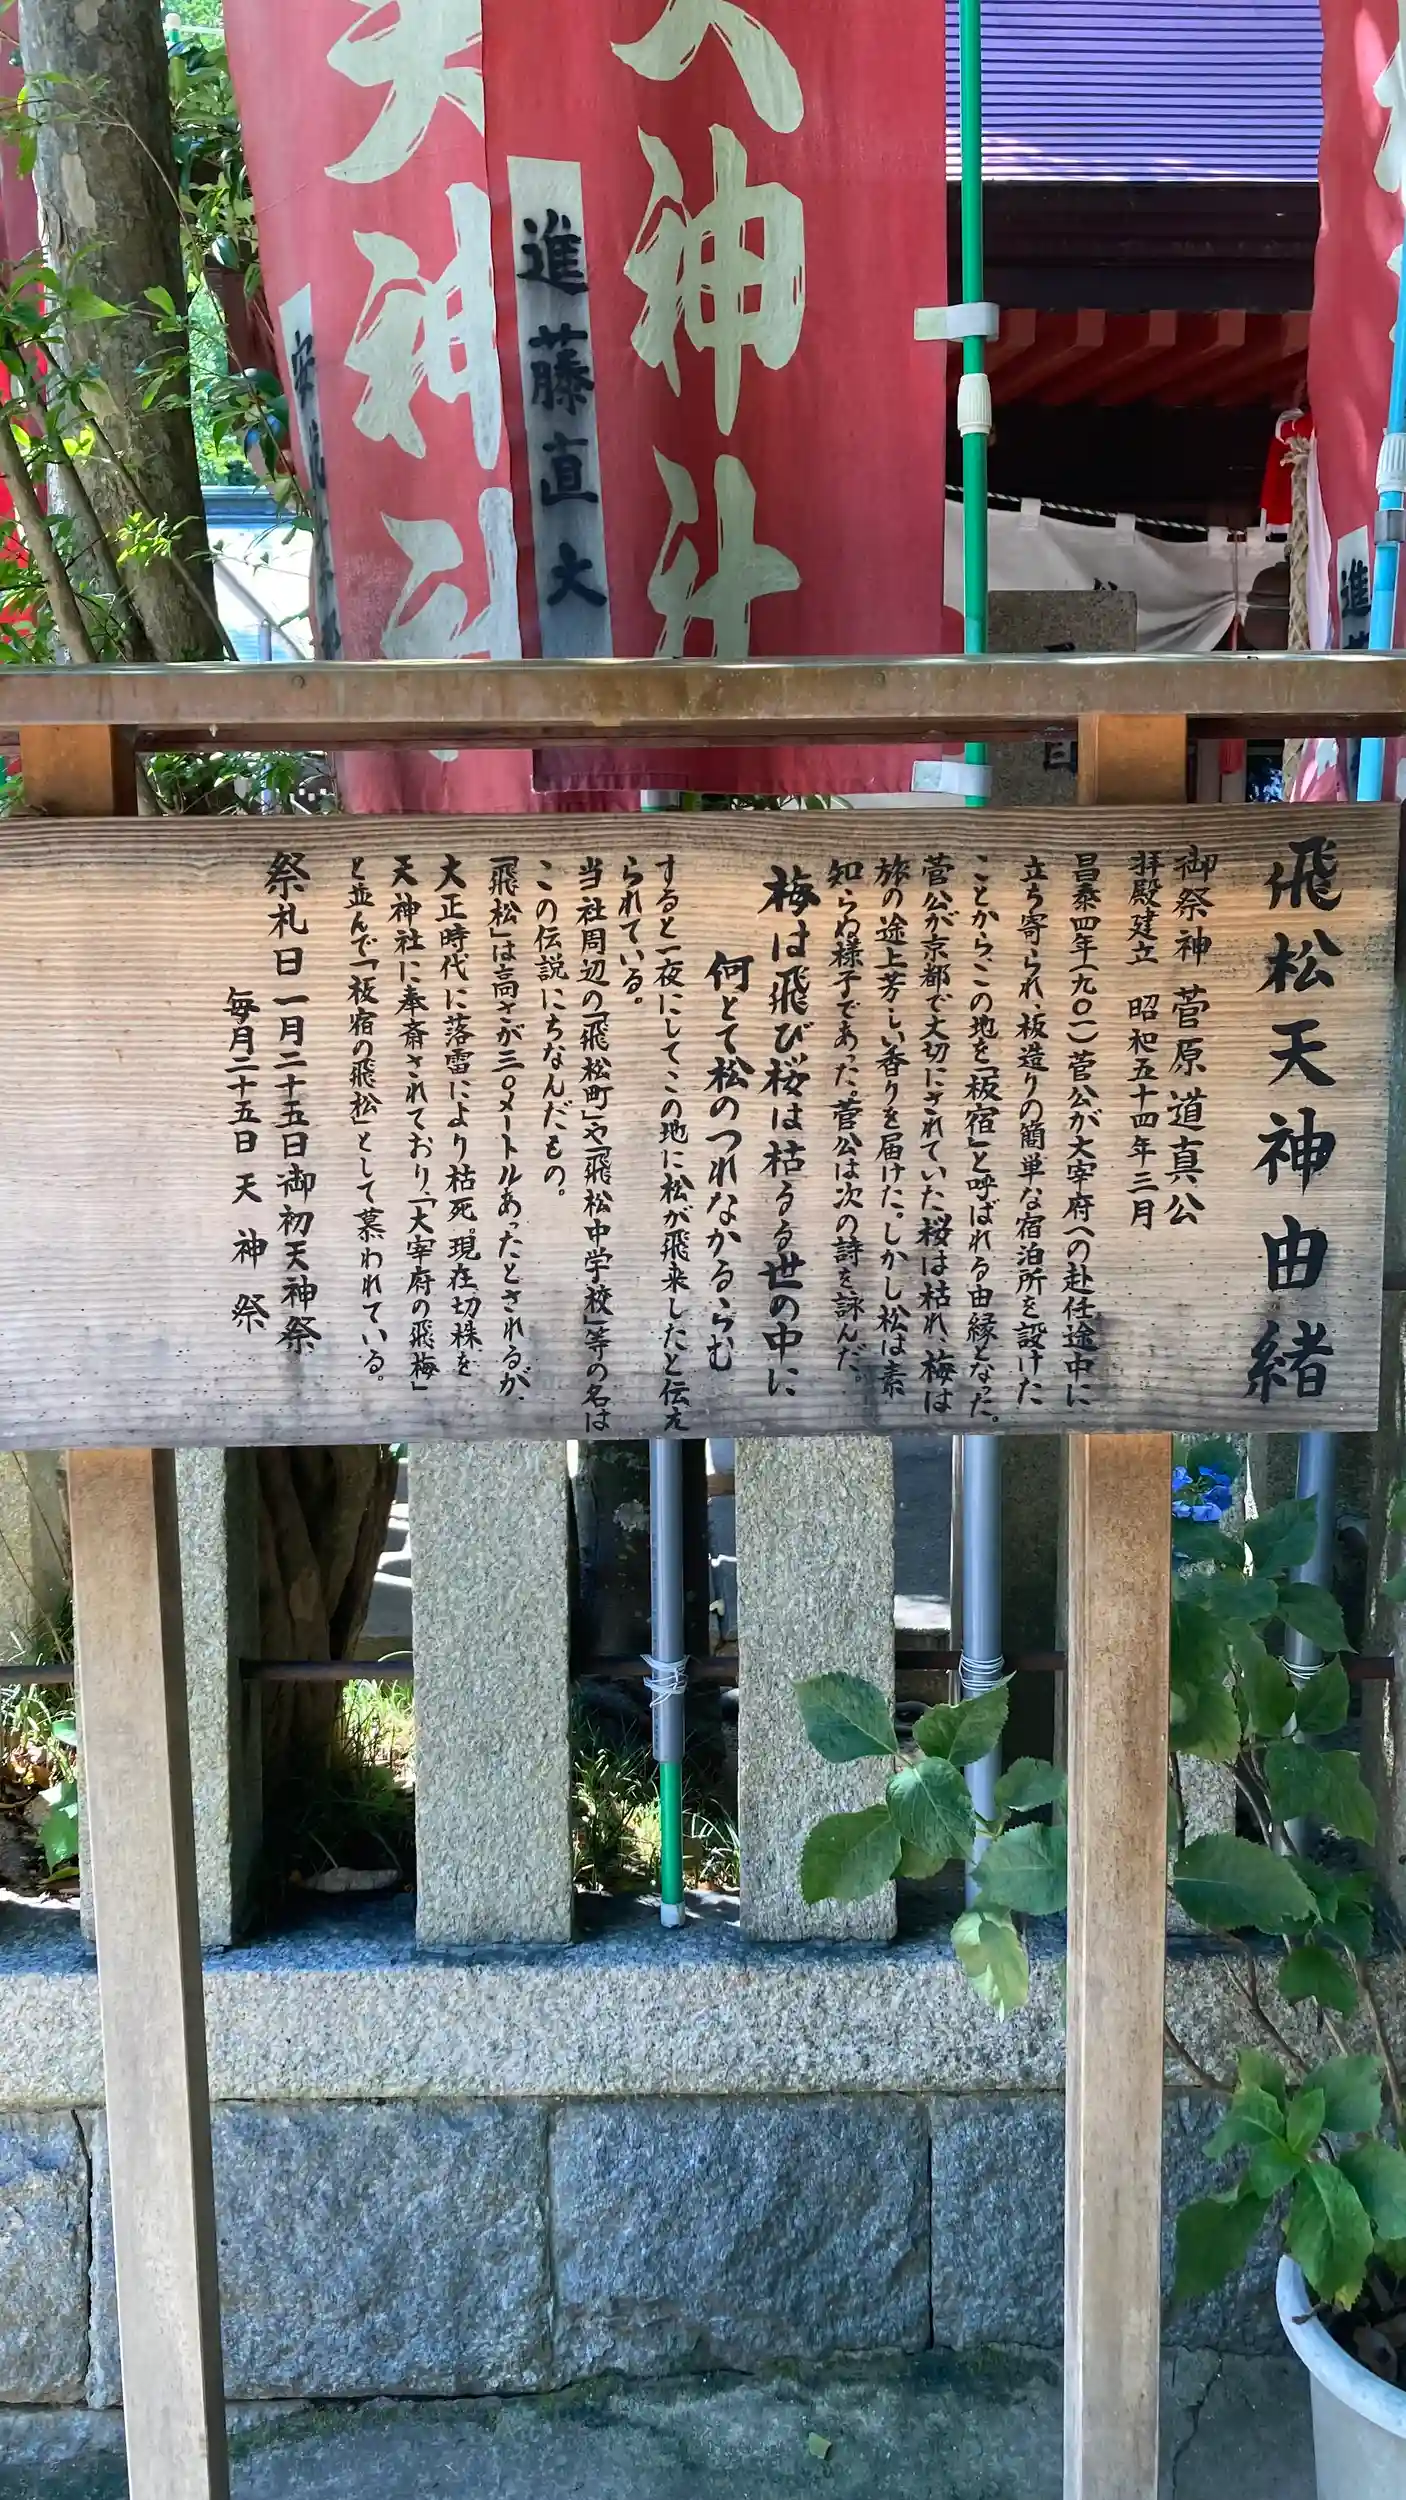 飛松天神由緒
御祭神 菅原道真公
拝殿建立 昭和五十四年三月
昌泰四年(九〇一)菅公が大宰府への赴任途中に
立ち寄られ、板造りの簡単な宿泊所を設けた
ことから、この地を「板宿」と呼ばれる由縁となった。
菅公が京都で大切にされていた桜は枯れ、梅は
旅の途上芳しい香りを届けた。しかし松は素
知らぬ様子であった。菅公は次の詩を詠んだ。
梅は飛び桜は枯るる世の中に
何とて松のつれなかるらむ
すると一夜にしてこの地に松が飛来したと伝え
られている。
当社周辺の「飛松町」や「飛松中学校」等の名は
この伝説にちなんだもの。
「飛松」は高さが三〇メートルあったとされるが、
大正時代に落雷により枯死。現在切株を
天神社に奉斎されており、「大宰府の飛梅」
と並んで「板宿の飛松」として慕われている。
祭礼日 一月二十五日 御初天神祭
毎月二十五日 天神祭
天神社
進藤直大
天神社
進